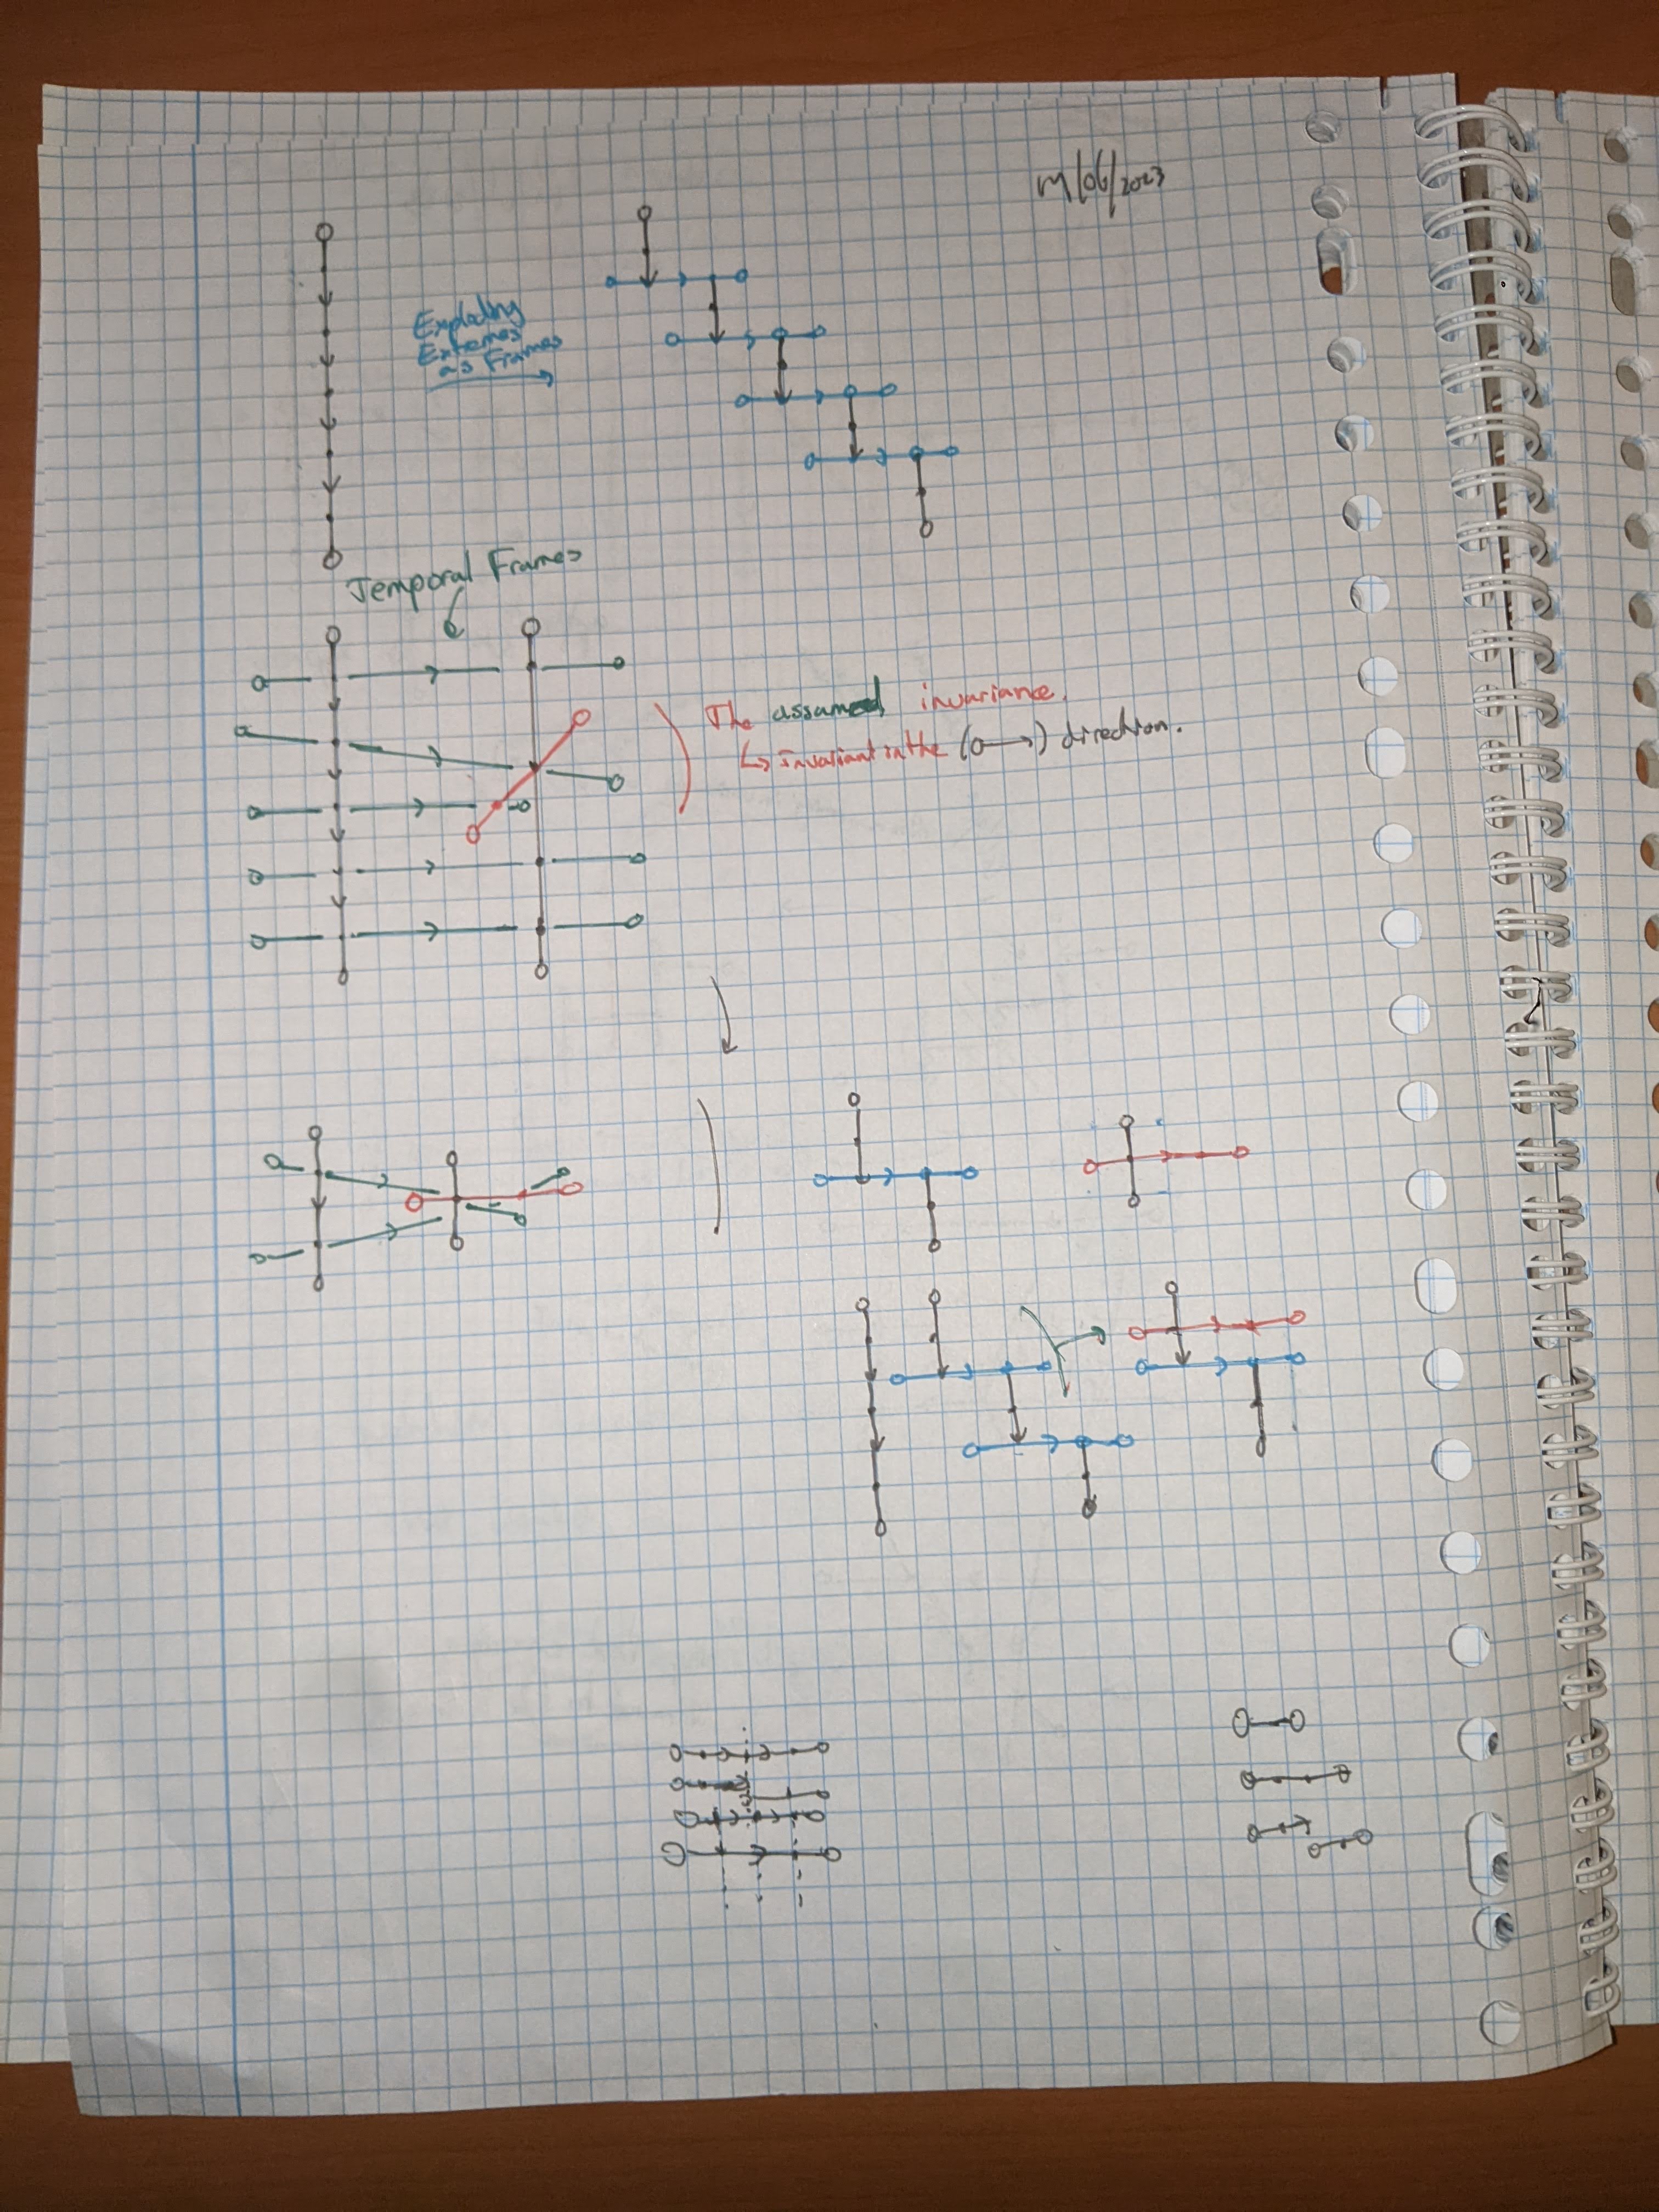 /06/2023
Exploding
Extremes
as Frames
Temporal Frames
The assumed invariance.
↳ invariant in the (o→) direction.